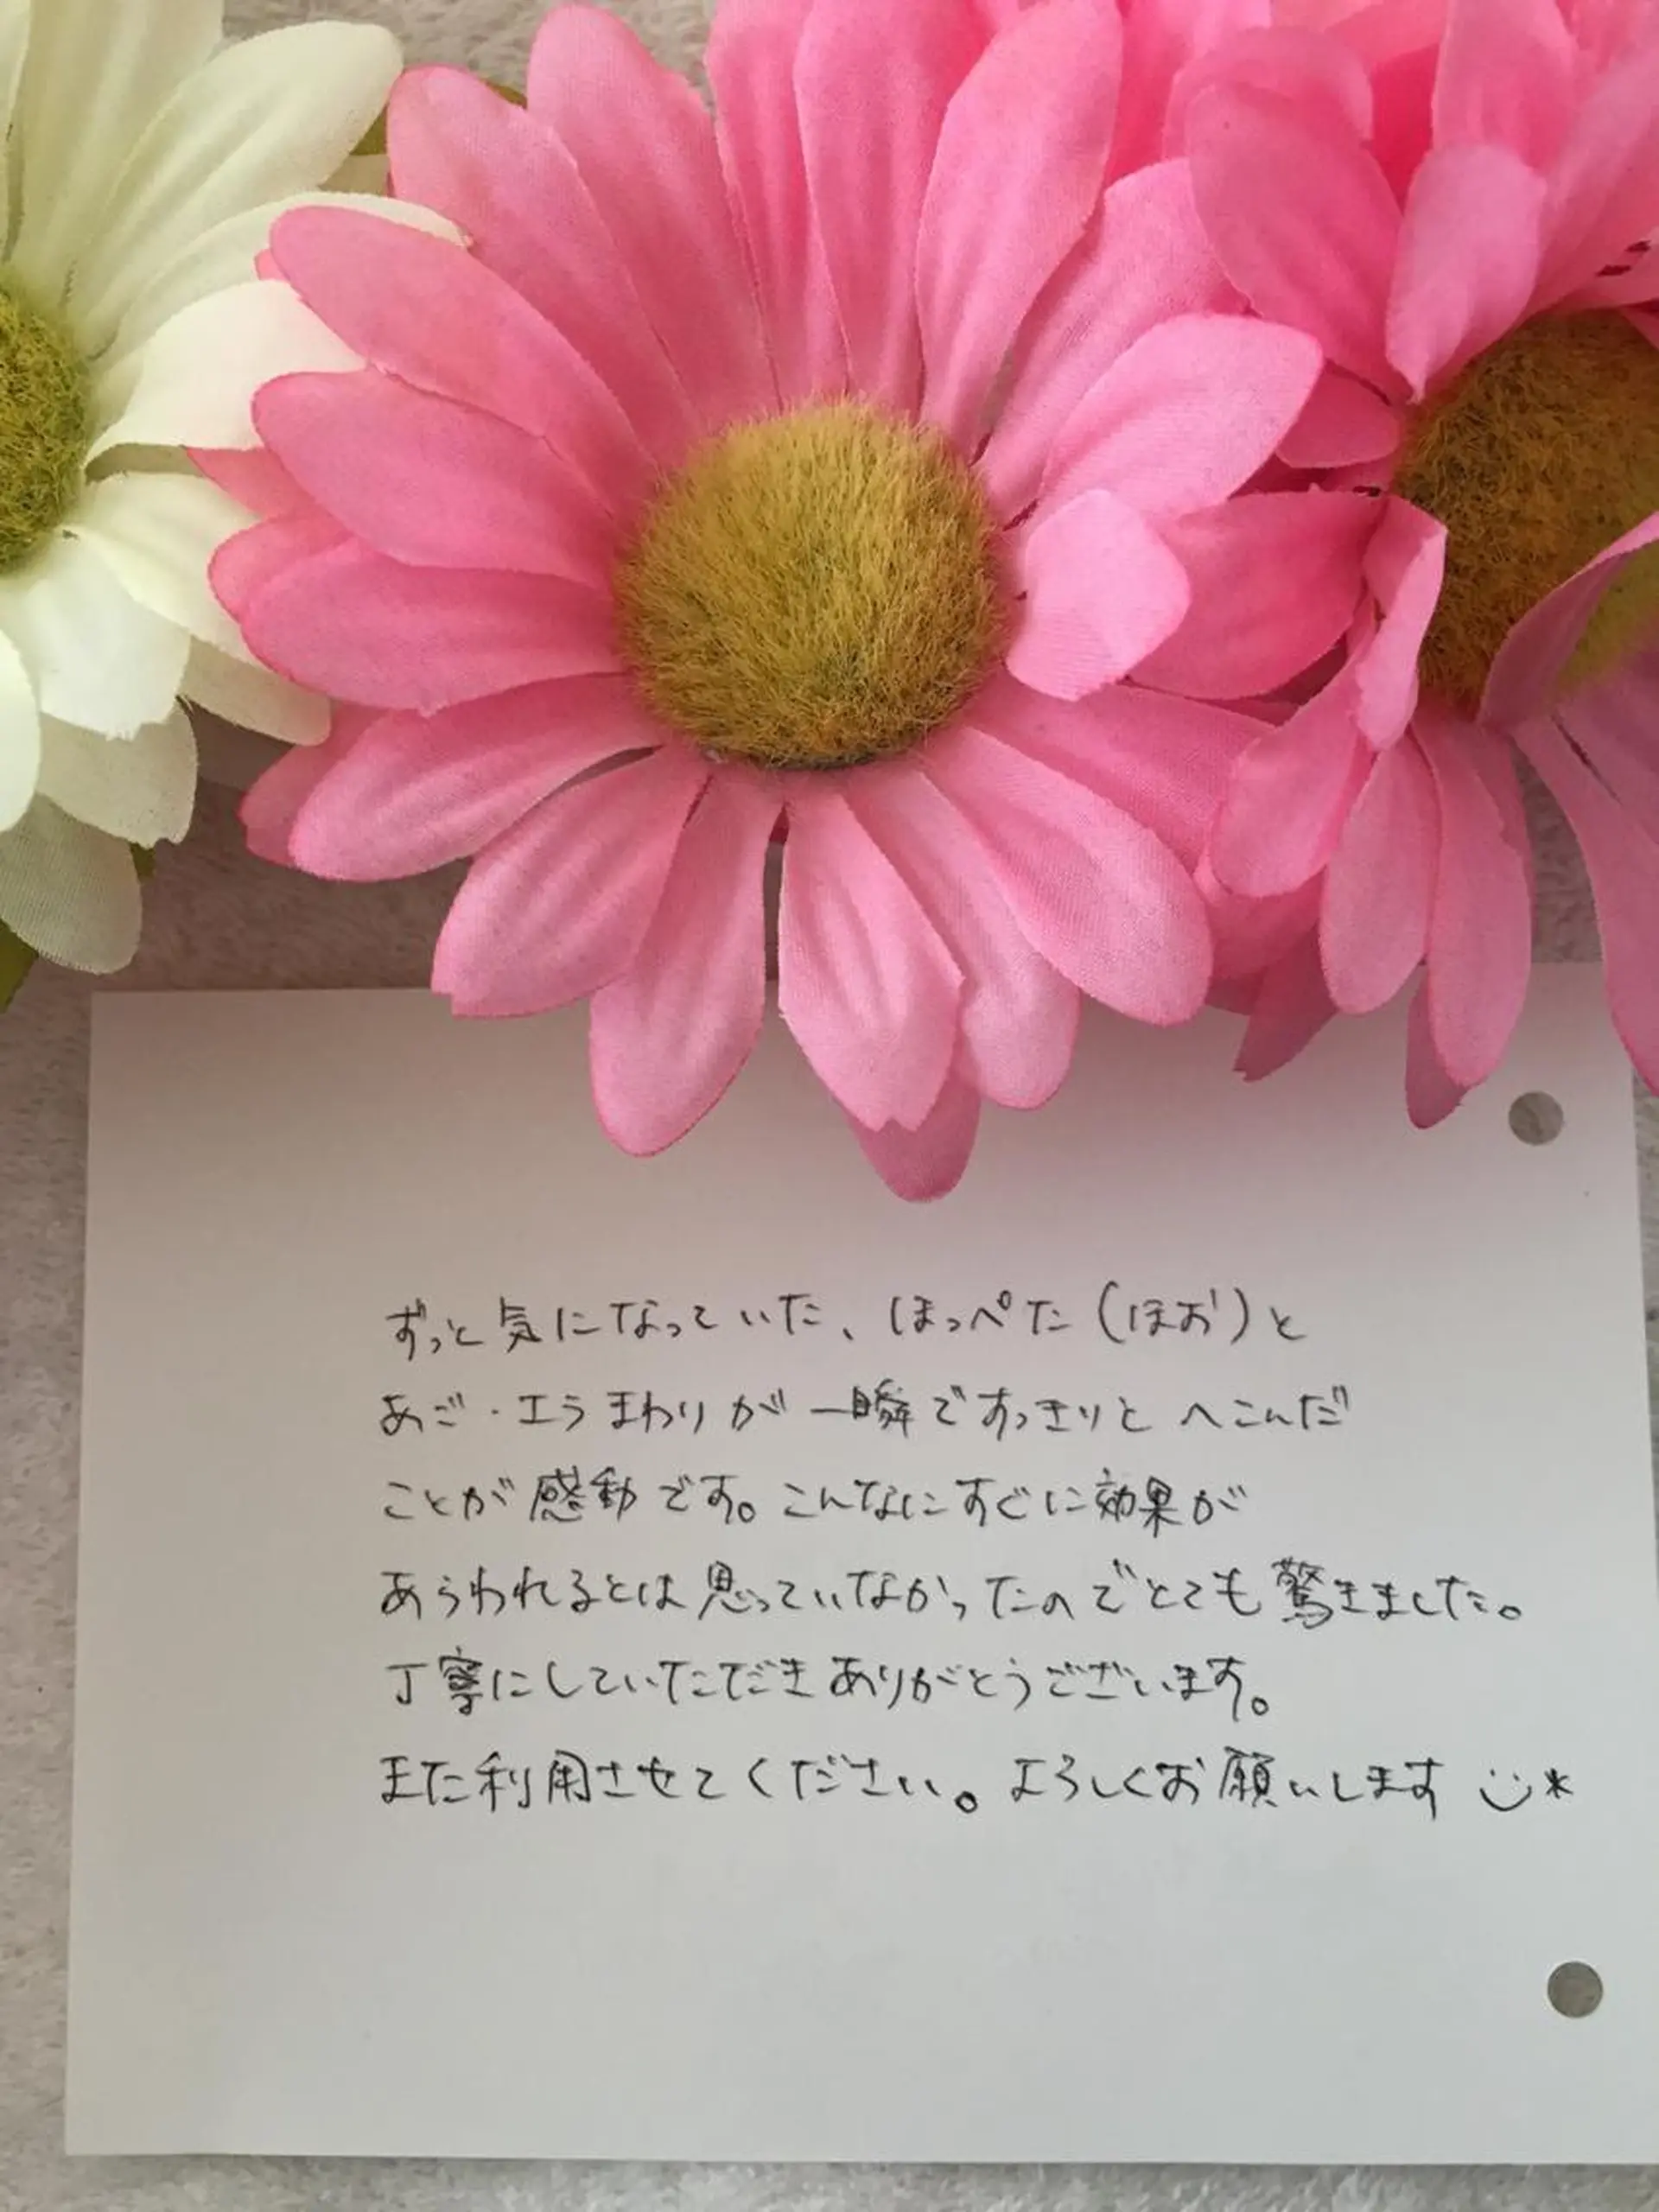 ずっと気になっていた、ほっぺた(ほお)と
あご・エラまわりが一瞬ですっきりとへこんだ
ことが感動です。こんなにすぐに効果が
あらわれるとは思っていなかったのでとても驚きました。
丁寧にしていただきありがとうございます。
また利用させてください。よろしくお願いします